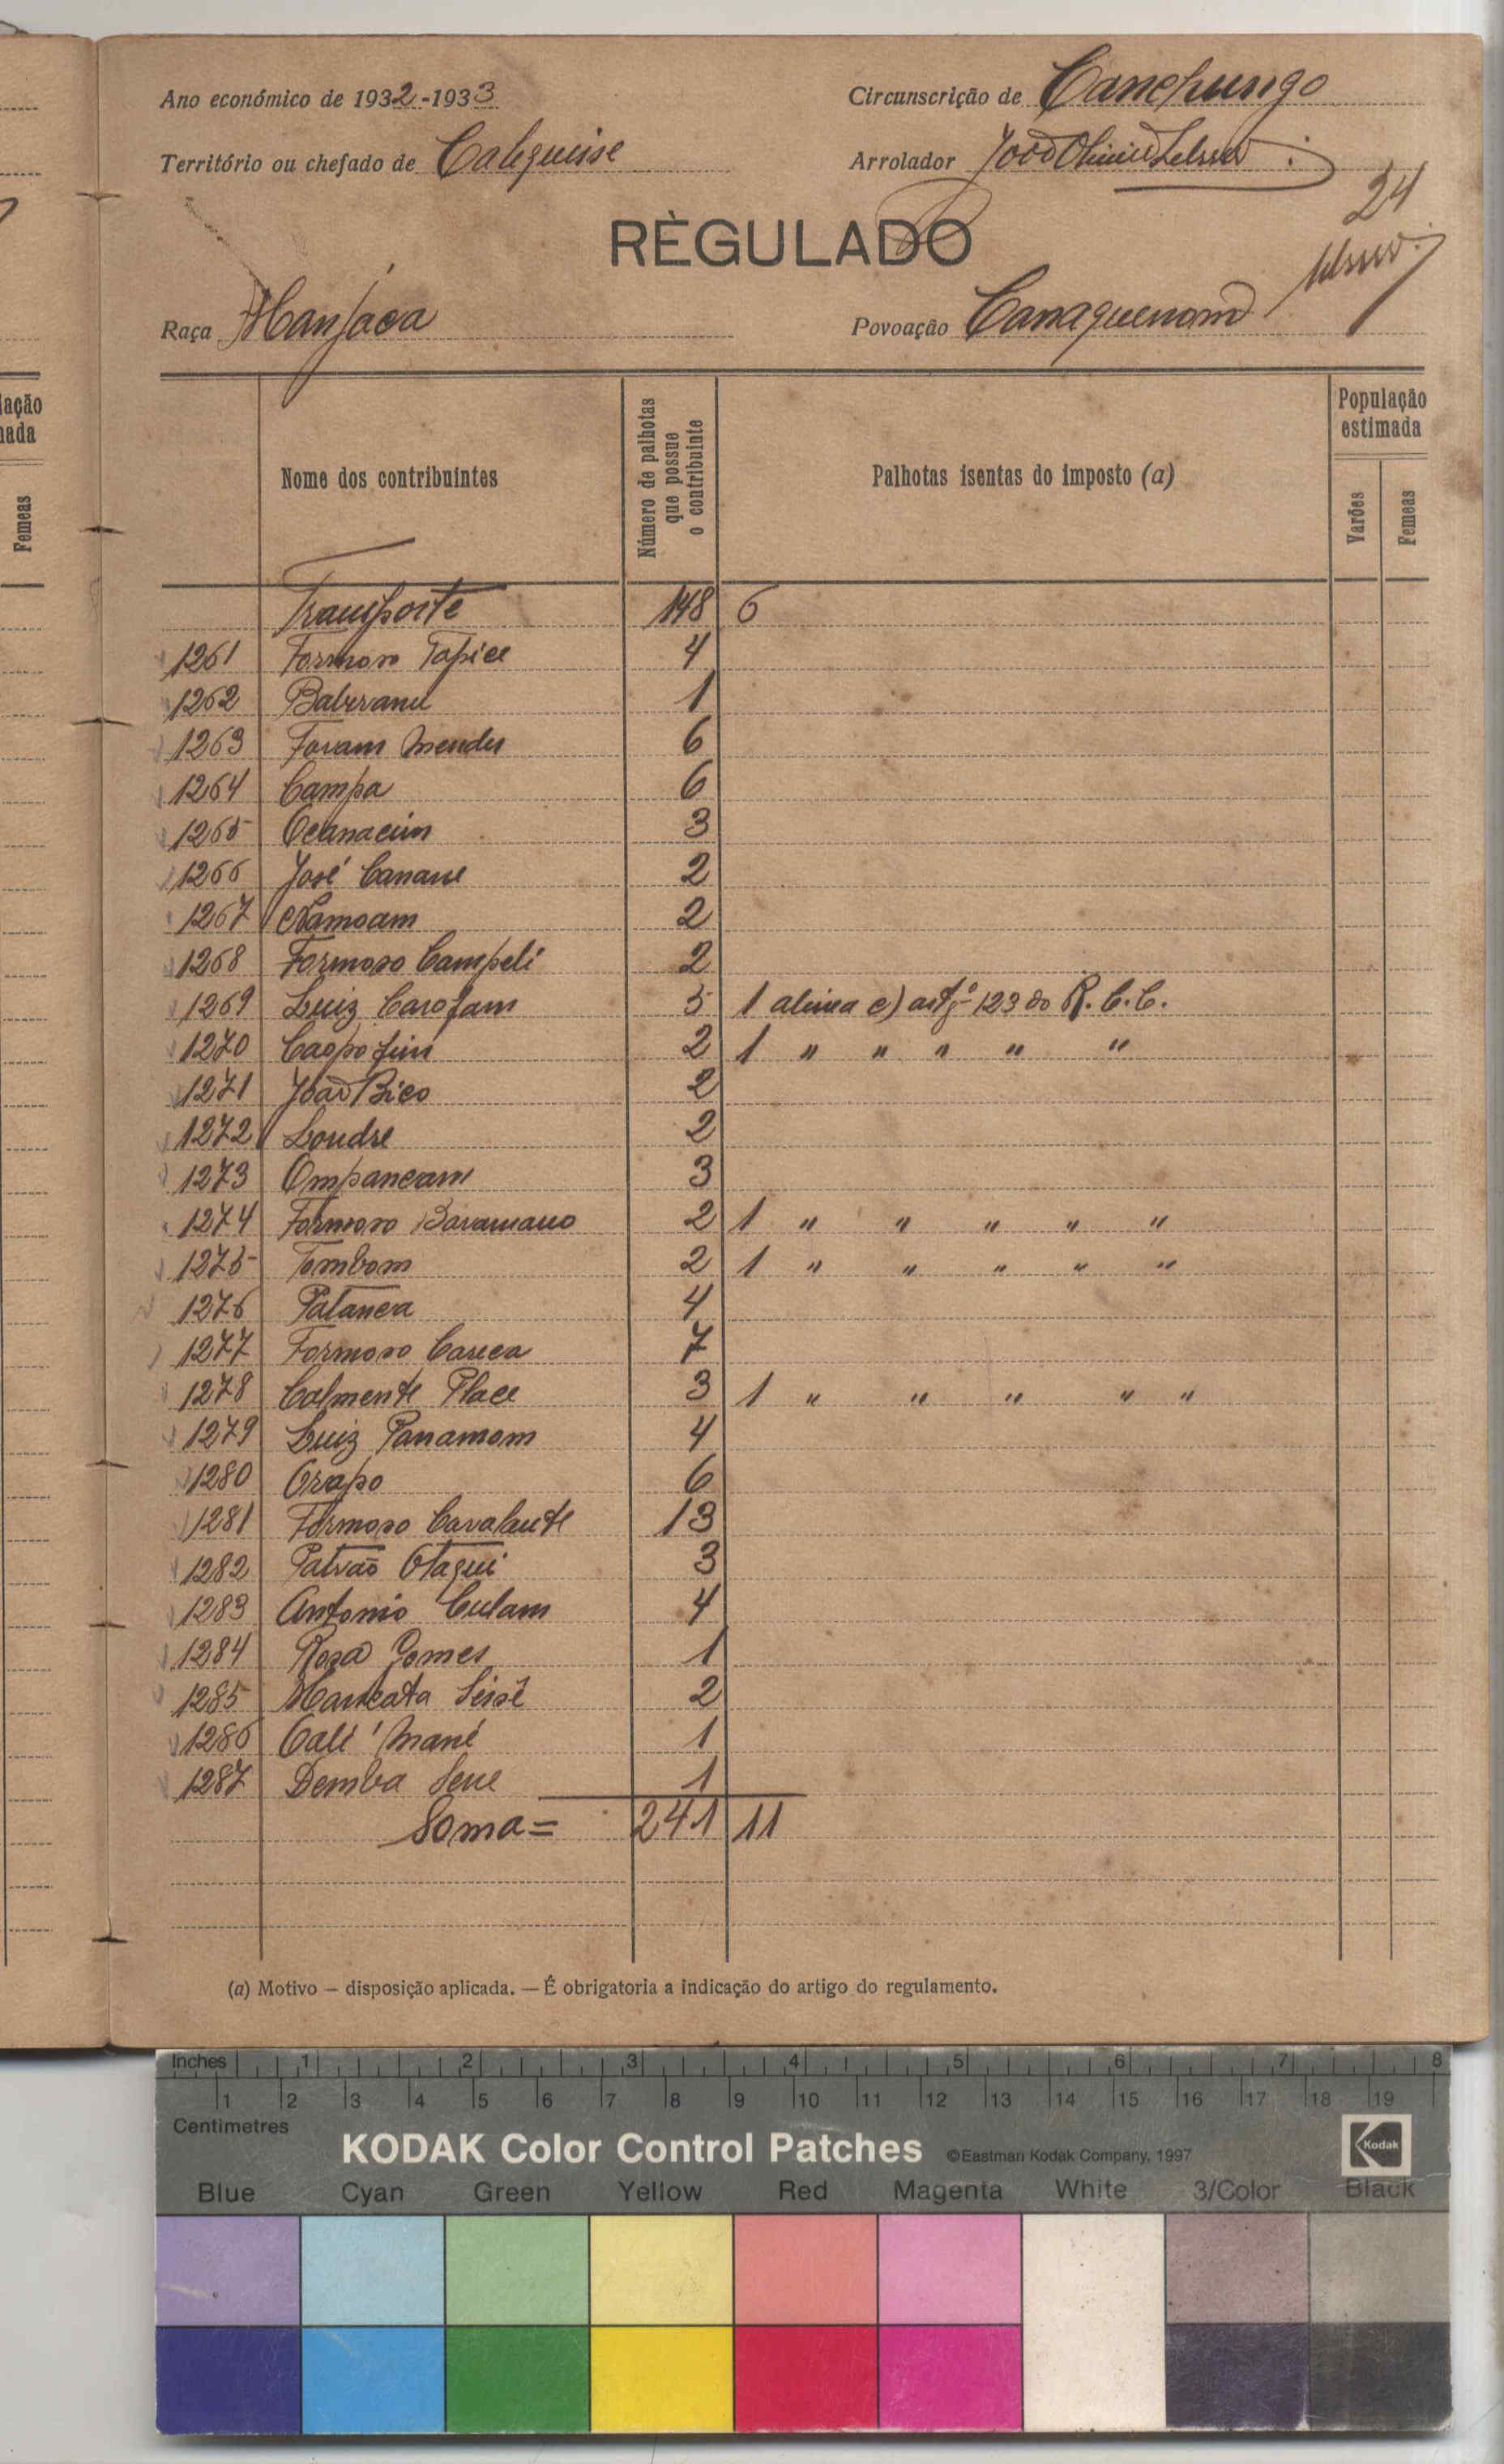 Ano económico de 1932-1933
Circunscrição de Canchungo
Território ou chefado de Calequisse
Arrolador João
24
RÈGULADO
Raça Manjaca
Povoação Canaquenam
lação
nada
Femeas
Nome dos contribuintes
Número de palhotas que possue o contribuinte
Palhotas isentas do imposto (a)
População estimada
Varões
Femeas
Transporte 148 6
1261 Formoso Tapice 4
1262 1
1263 Favam Mendes 6
1264 Campa 6
1265 Ocanacim 3
1266 José Canane 2
1267 Namoam 2
1268 Formoso Campeli 2
1269 Luiz Carofam 5 1 alinea c) artg.º 123 do R. C. C.
1270 2 1 " " " " "
1271 João Bico 2
1272 Loudre 2
1273 Ompancam 3
1274 Formoso Bavamano 2 1 " " " " "
1275 Tombom 2 1 " " " " "
1276 Patanca 4
1277 Formoso Careca 7
1278 Calmente Place 3 1 " " " " "
1279 Luiz Panamom 4
1280 Orapo 6
1281 Formoso Cavalante 13
1282 Patrão Otaqui 3
1283 Antonio Culam 4
1284 Roza Gomes 1
1285 Mancata Seisé 2
1286 Calé Mané 1
1287 Demba Sene 1
Soma = 241 11
(a) Motivo — disposição aplicada. — É obrigatoria a indicação do artigo do regulamento.
Inches 1 2 3 4 5 6 7 8
1 2 3 4 5 6 7 8 9 10 11 12 13 14 15 16 17 18 19
Centimetres
KODAK Color Control Patches ©Eastman Kodak Company, 1997 Kodak
Blue Cyan Green Yellow Red Magenta White 3/Color Black